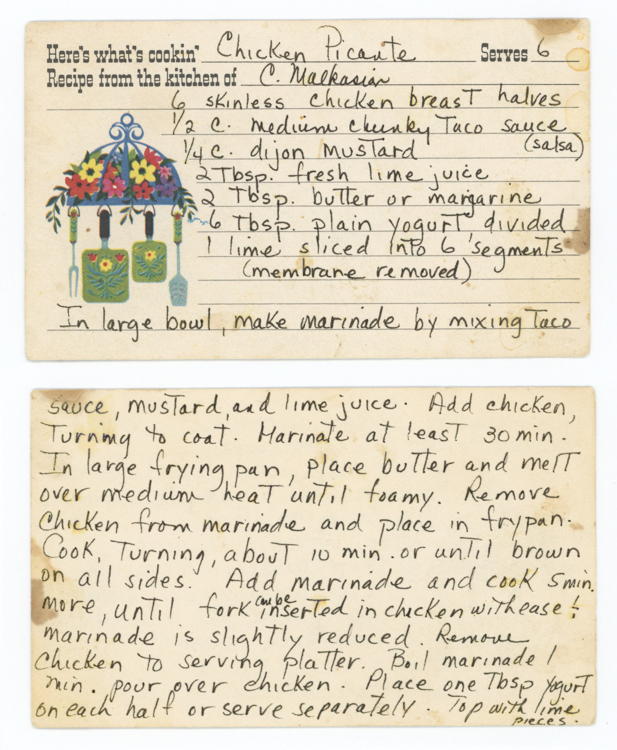 Here's what's cookin' Chicken Picante Serves 6
Recipe from the kitchen of C. Malkasian
6 skinless chicken breast halves
1/2 c. medium chunky Taco sauce
(salsa)
1/4 c. dijon mustard
2 Tbsp. fresh lime juice
2 Tbsp. butter or margarine
6 Tbsp. plain yogurt, divided
1 lime sliced into 6 segments
(membrane removed)
In large bowl, make marinade by mixing Taco
sauce, mustard, and lime juice. Add chicken,
Turning to coat. Marinate at least 30 min.
In large frying pan, place butter and melt
over medium heat until foamy. Remove
Chicken from marinade and place in frypan.
Cook, Turning, about 10 min. or until brown
on all sides. Add marinade and cook 5 min.
more, until fork can be inserted in chicken with ease &
marinade is slightly reduced. Remove
Chicken to serving platter. Boil marinade 1
min. pour over chicken. Place one Tbsp yogurt
on each half or serve separately. Top with lime
pieces.